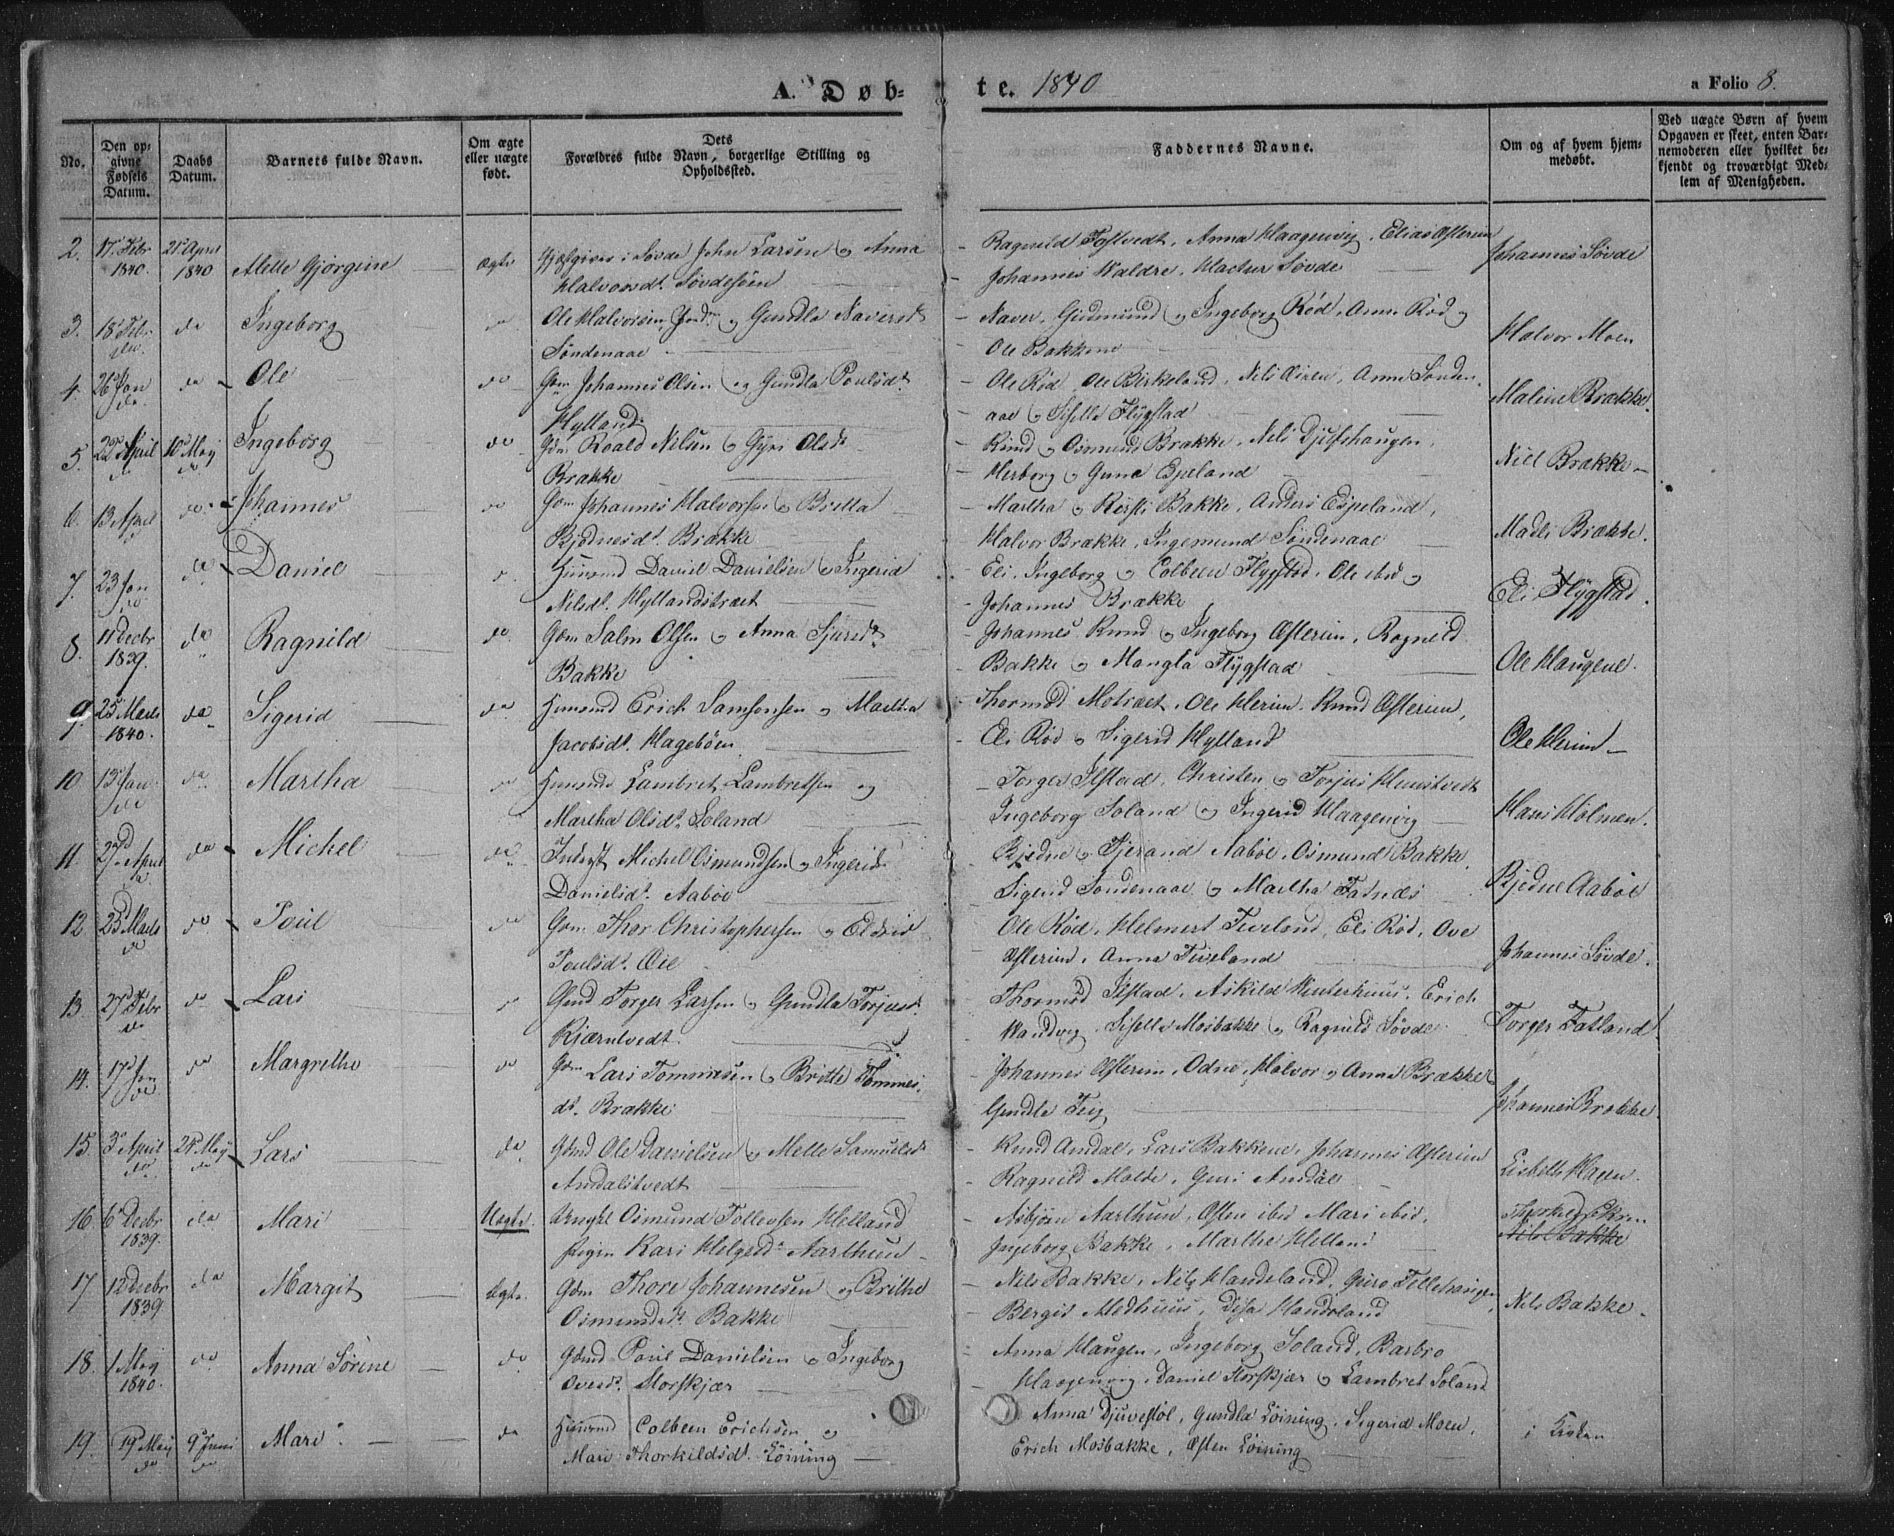 A. Døb-
te. 1840
a Folio 8.
No.
Den op-
givne
Fødsels
Datum.
Daabs
Datum.
Barnets fulde Navn.
Om ægte
eller uægte
født.
Dets
Forældres fulde Navn, borgerlige Stilling og
Opholdssted.
Faddernes Navne.
Om og af hvem hjem-
medøbt.
Ved uægte Børn af hvem
Opgaven er skeet, enten Bar-
nemoderen eller hvilket be-
kjendt og troværdigt Med-
lem af Menigheden.
2. 17 Febr 1840. 21 April 1840 Mette Gjørgine ægte Gjæstgiver i Søvde John Larsen og Anna
Halvorsdt. Søvdesøen
Ragnild Fostvedt, Anna Haagenvig, Elias Østerim
Johannes Waldre, Søvde
Johannes Søvde
3. 18 Febr do. do Ingeborg Ole Halvorsen og Gundla Naversdt
Søndenaae
Naver, Gudmund og Ingeborg Rød, Anna Rød og
Ole Bakkene
Halvor Moen
4. 26 Jan do. do Ole do Gdm Johannes Olsen og Gundla Poulsdt.
Hylland
Ole Rød, Ole Birkeland, Nels Anna Sønden-
aae og Siselle Flygstad
Malene Brække.
5. 22 April do 10 Maj do Ingeborg do Gdm. Roald Nilsen og Gyri Olsdt
Brakke
Knud og Osmund Brakke, Nels Djufshaugen,
Herborg og Guna Espeland
Niels Brakke
6. 13 April do do Johannes do Gdm Johannes Halvorsen og Britta
Bjødnesdt. Brakke
Martha og Kirsti Bakke, Anders Espeland,
Halvor Brække, Ingemund Søndenaae
Madli Brakke.
7. 23 Jan do do Daniel Huusmd Daniel Danielsen og Ingerid
Nilsdt. Hyllandstræet
Eli, Ingeborg og Colbeen Flygstad, Ole ibid og
Johannes Brække
Eli Flygstad.
8. 11 Decbr 1839. da Ragnild do. Gdm Salm Olsen og Anna Sjursdt
Bakke
Johannes, Knud og Ingeborg Østerim, Ragnild
Bakke og Mangla Flygstad
Ole Haugene.
9. 25 Marts 1840. da Sigerid da Huusmd Erich Samsonsen og Martha
Jacobsdt. Hagebøen
Thormod Motræet, Ole Herim, Knud Østerim,
Eli Rød og Sigerid Hylland
Ole Herim
10 13 Jan do da Martha Huusmd Lambret Lambretsen og
Martha Olsdt. Soland
Torger Ilstad, Christen og Torjus Hemstvedt
Ingeborg Soland og Ingerid Haagenvig
Hans Holmen.
11. 27 April do da Michel da Inderst Michel Osmundsen og Ingerid
Danielsdt. Aabøe
Bjødne og Tjerand Aabøe, Osmund Bakke,
Sigerid Søndenaae og Martha Fatnæs
Bjødne Aabøe
12. 25 Marts do do Poul do Gdm Thor Christophersen og Eldrid
Poulsdt. Øie
Ole Rød, Helmert Tveland, Eli Rød, Ove
Østerim, Anna Tveland
Johannes Søvde.
13. 27 Febr do do Lars Gdmd Torger Larsen og Gundla Torjusdt.
Kjærntvedt.
Thormod Ilstad, Askild Winterhuus, Erich
Handvig, Siselle Mosbakke og Ragnild Søvde
Torger Fatland
14. 17 Jan do do Margrethe do Gdm Lars Tommæsen og Britte Tommes-
dt. Brakke
Johannes Østerim, Odne, Halvor og Anna Brække og
Gundla Tvey
Johannes Brakke.
15. 3 April do 24 Maj do Lars da Gdmd Ole Danielsen og Mette Samuelsdt
Amdalstvedt
Knud Amdal, Lars Bakkene, Johannes Østerim
Ragnild Molde, Guri Amdal
Lisbeth Hagen.
16. 6 Decbr 1839. da Mari Uægte. Ungkl Osmund Tollevsen Helland
Pigen Kari Helgesdt Aarthun
Asbjørn Aarthun, Østen ibid Mari ibid,
Ingeborg Bakke, Marthe Helland
Nils Bakke
17 12 Decbr 1839. da Margit ægte. Gdm Thore Johannesen og Brithe
Osmundsdt. Bakke
Nils Bakke, Nils Handeland, Guro Tellehaugen
Bergit Medhuus, Disa Handeland
Nils Bakke.
18. 1 Maj 1840. do Anna Sørine do Gdmd Poul Danielsen og Ingeborg
Ovesdt. Storskjær
Anna Haugen, Ingeborg Soland, Barbro
Haagenvig, Daniel Storskjær og Lambret Soland
19. 19 Maj do 9 Juni do Mari da Huusmd Colbeen Erichsen og
Mari Thorkildsdt. Løining
Anna Djuvestøl, Gundla Løining, Sigerid Moen,
Erich Mosbakke, Østen Løining
i Kirken